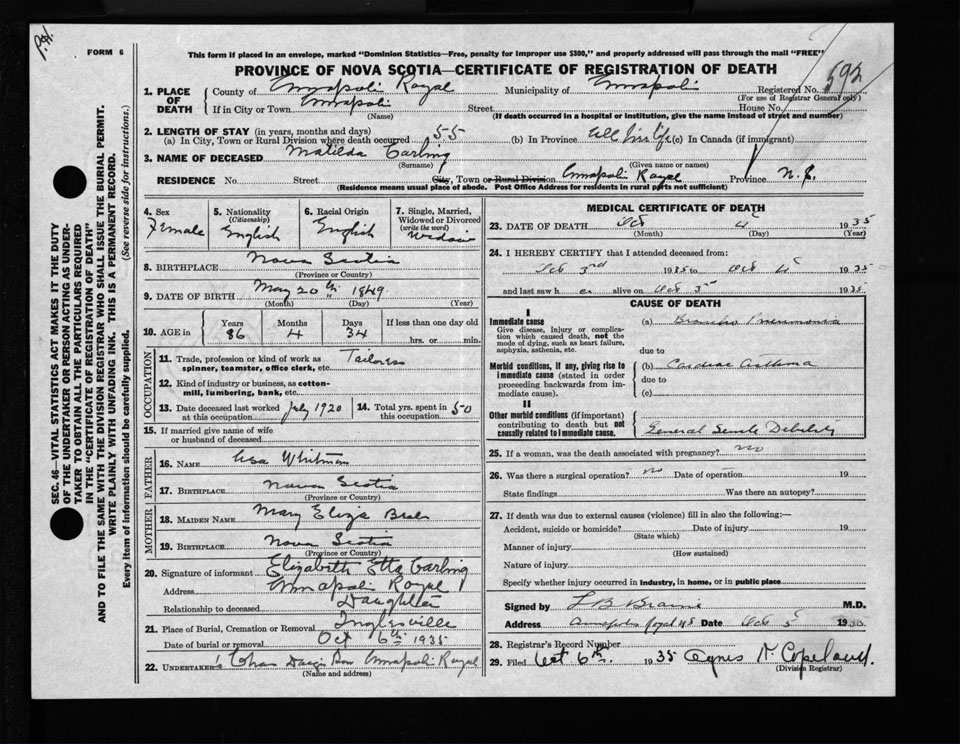 FORM 6
This form if placed in an envelope, marked "Dominion Statistics—Free, penalty for improper use $300," and properly addressed will pass through the mail "FREE"
PROVINCE OF NOVA SCOTIA—CERTIFICATE OF REGISTRATION OF DEATH
592
SEC. 46—VITAL STATISTICS ACT MAKES IT THE DUTY
OF THE UNDERTAKER OR PERSON ACTING AS UNDER-
TAKER TO OBTAIN ALL THE PARTICULARS REQUIRED
IN THE "CERTIFICATE OF REGISTRATION OF DEATH"
AND TO FILE THE SAME WITH THE DIVISION REGISTRAR WHO SHALL ISSUE THE BURIAL PERMIT.
WRITE PLAINLY WITH UNFADING INK. THIS IS A PERMANENT RECORD.
Every item of information should be carefully supplied. (See reverse side for instructions.)
1. PLACE OF DEATH
County of Annapolis Royal Municipality of Annapolis Registered No.
(For use of Registrar General only)
If in City or Town Annapolis Street House No.
(Name) (If death occurred in a hospital or institution, give the name instead of street and number)
2. LENGTH OF STAY (in years, months and days)
(a) In City, Town or Rural Division where death occurred 55 (b) In Province All her life (c) In Canada (if immigrant)
3. NAME OF DECEASED Matilda Garling
(Surname) (Given name or names)
RESIDENCE No. Street City, Town or Rural Division Annapolis Royal Province N.S.
(Residence means usual place of abode. Post Office Address for residents in rural parts not sufficient)
4. Sex Female
5. Nationality (Citizenship) English
6. Racial Origin English
7. Single, Married, Widowed or Divorced (write the word) Widow
8. BIRTHPLACE Nova Scotia
(Province or Country)
9. DATE OF BIRTH May 20th 1849
(Month) (Day) (Year)
10. AGE in Years 86 Months 4 Days 34 If less than one day old hrs. or min.
OCCUPATION
11. Trade, profession or kind of work as spinner, teamster, office clerk, etc. Tailoress
12. Kind of industry or business, as cotton-mill, lumbering, bank, etc.
13. Date deceased last worked at this occupation July 1920 14. Total yrs. spent in this occupation 50
15. If married give name of wife or husband of deceased
FATHER
16. NAME Asa Whitman
17. BIRTHPLACE Nova Scotia
(Province or Country)
MOTHER
18. MAIDEN NAME Mary Eliza
19. BIRTHPLACE Nova Scotia
(Province or Country)
20. Signature of informant Elizabeth Etta Garling
Address Annapolis Royal
Relationship to deceased Daughter
21. Place of Burial, Cremation or Removal Inglesville
Date of burial or removal Oct 6th 1935
22. UNDERTAKER Annapolis Royal
(Name and address)
MEDICAL CERTIFICATE OF DEATH
23. DATE OF DEATH Oct 4 1935
(Month) (Day) (Year)
24. I HEREBY CERTIFY that I attended deceased from:
Oct 3rd 1935 to Oct 4 1935
and last saw her alive on Oct 5 1935
CAUSE OF DEATH
I
Immediate cause
Give disease, injury or complication which caused death, not the mode of dying, such as heart failure, asphyxia, asthenia, etc.
(a) Broncho Pneumonia
due to
Morbid conditions, if any, giving rise to immediate cause (stated in order proceeding backwards from immediate cause).
(b) Cardiac Asthma
due to
(c)
II
Other morbid conditions (if important) contributing to death but not causally related to immediate cause.
General Senile Debility
25. If a woman, was the death associated with pregnancy? no
26. Was there a surgical operation? no Date of operation 19
State findings Was there an autopsy?
27. If death was due to external causes (violence) fill in also the following:—
Accident, suicide or homicide? Date of injury 19
(State which)
Manner of injury
(How sustained)
Nature of injury
Specify whether injury occurred in industry, in home, or in public place
Signed by L B Braine M.D.
Address Annapolis Royal NS Date Oct 5 1935
28. Registrar's Record Number
29. Filed Oct 6th. 1935 Agnes N. Copeland.
(Division Registrar)